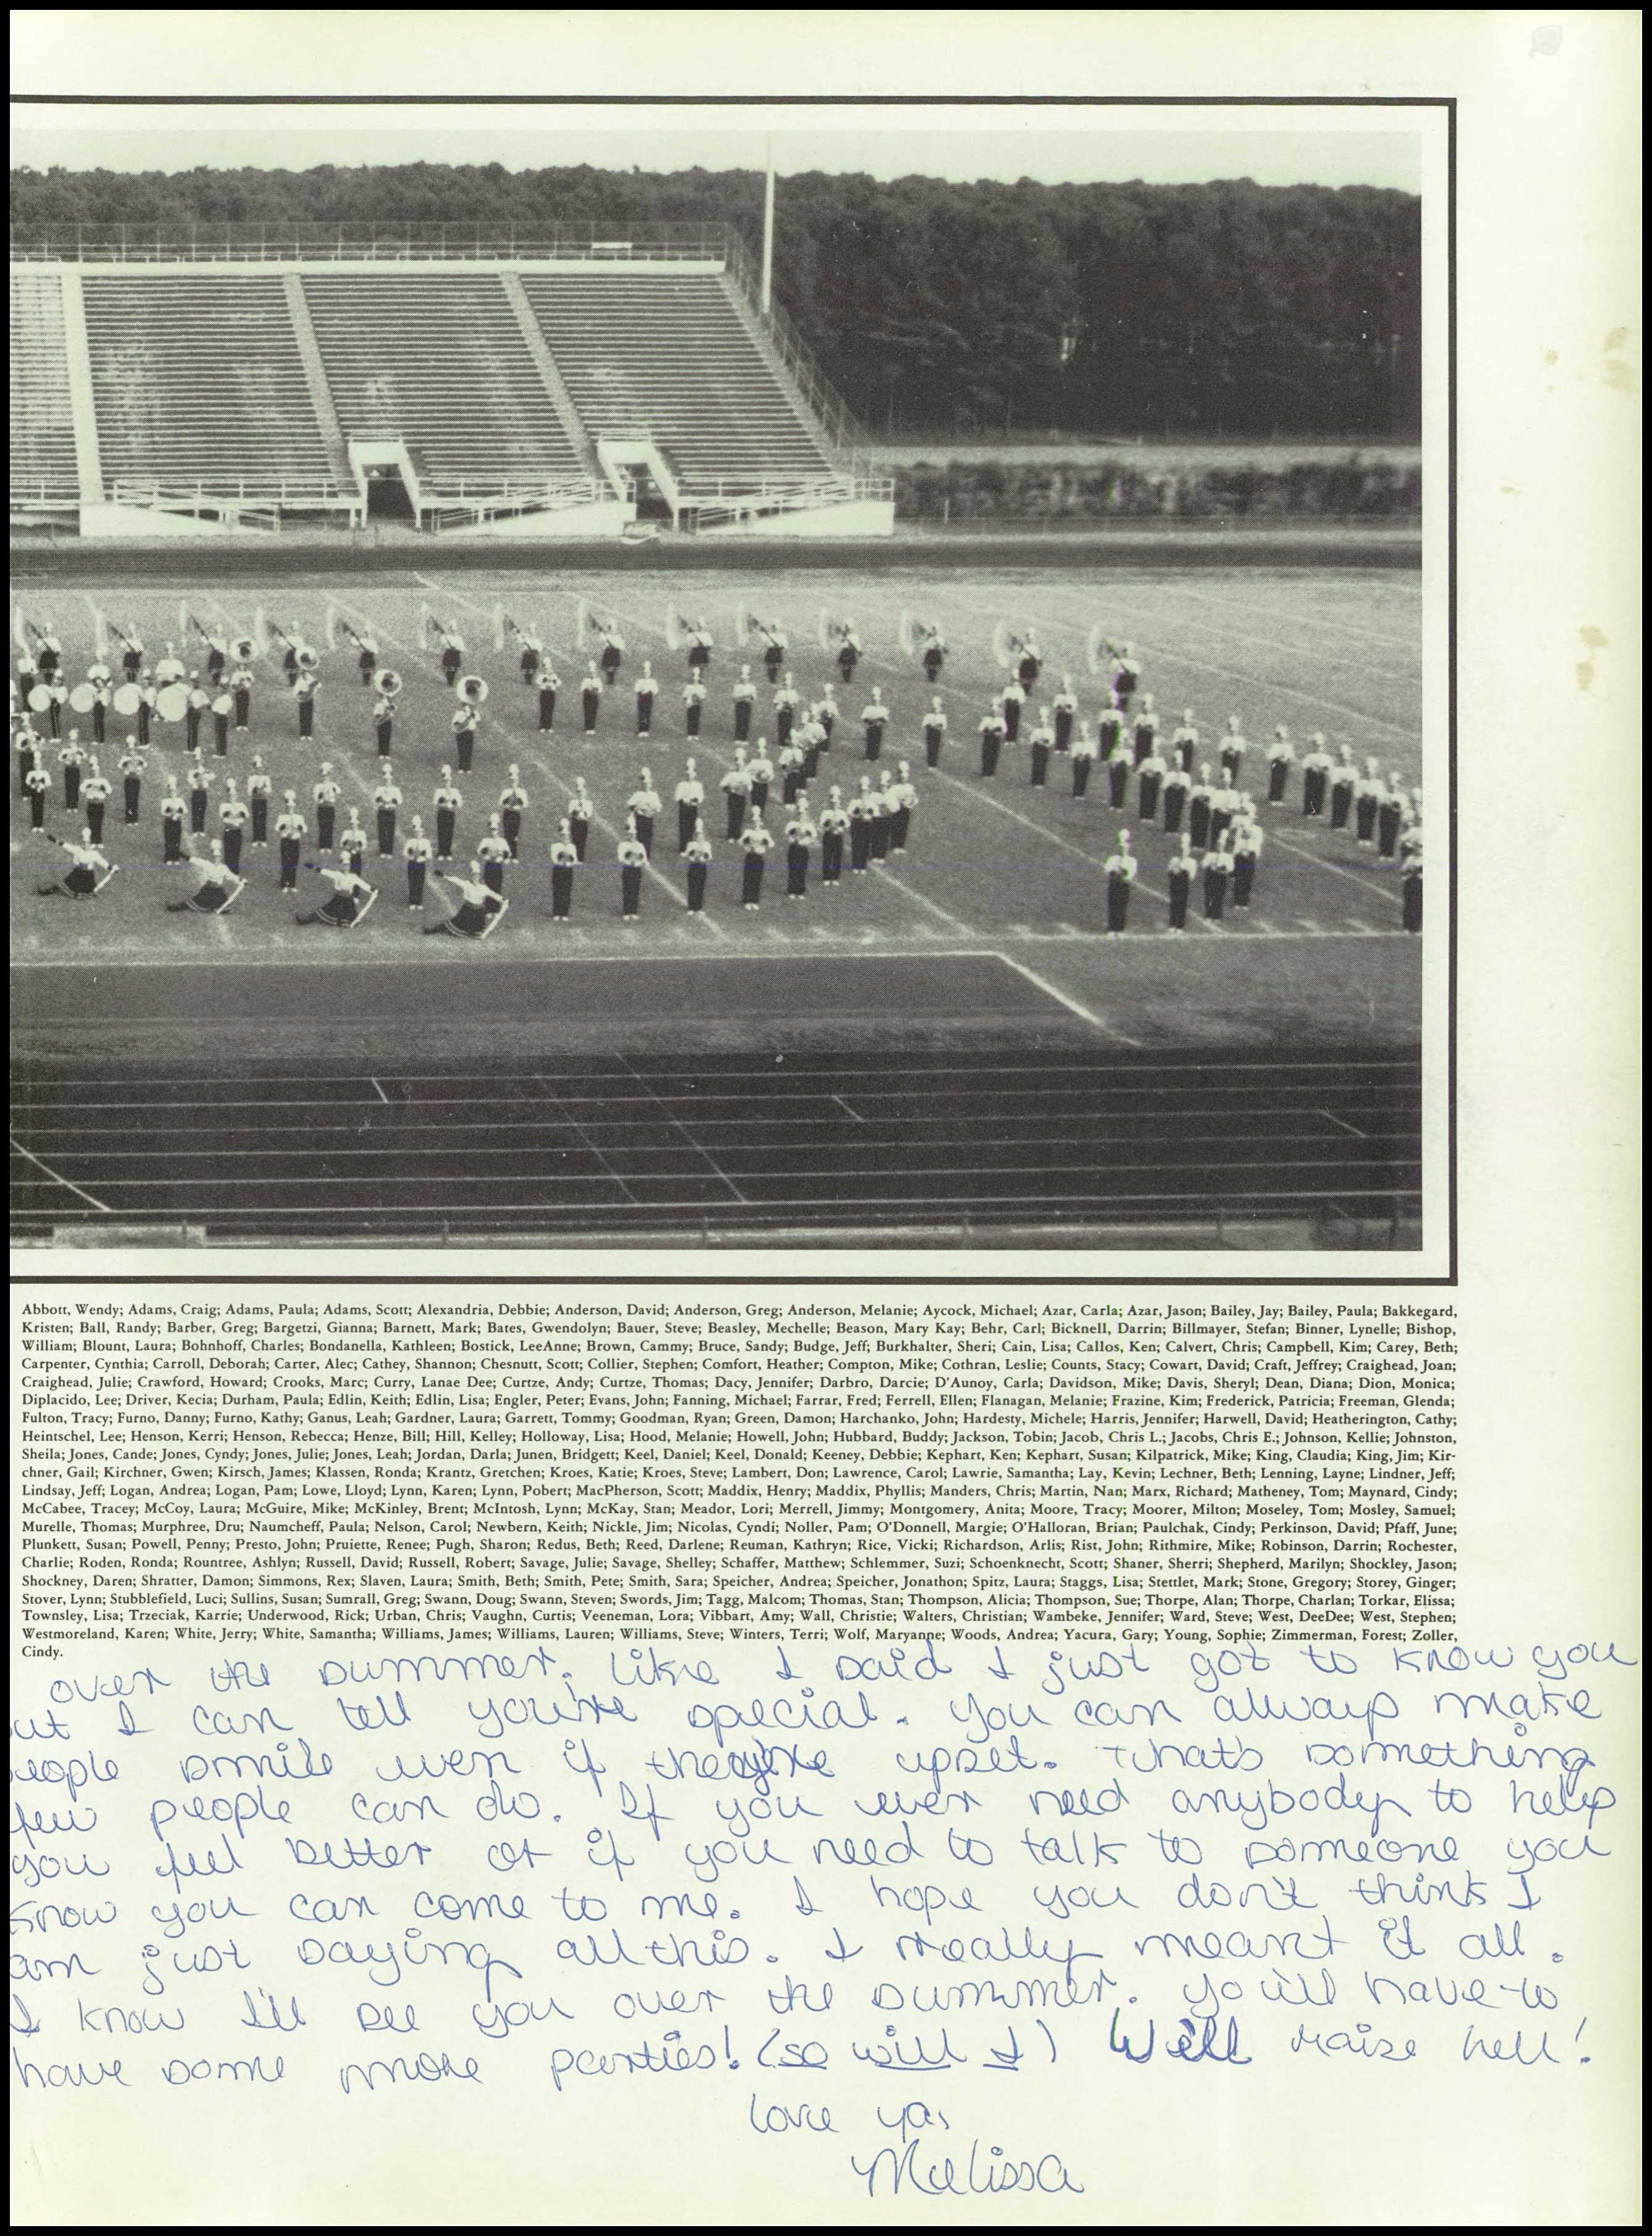 Abbott, Wendy; Adams, Craig; Adams, Paula; Adams, Scott; Alexandria, Debbie; Anderson, David; Anderson, Greg; Anderson, Melanie; Aycock, Michael; Azar, Carla; Azar, Jason; Bailey, Jay; Bailey, Paula; Bakkegard,
Kristen; Ball, Randy; Barber, Greg; Bargetzi, Gianna; Barnett, Mark; Bates, Gwendolyn; Bauer, Steve; Beasley, Mechelle; Beason, Mary Kay; Behr, Carl; Bicknell, Darrin; Billmayer, Stefan; Binner, Lynelle; Bishop,
William; Blount, Laura; Bohnhoff, Charles; Bondanella, Kathleen; Bostick, LeeAnne; Brown, Cammy; Bruce, Sandy; Budge, Jeff; Burkhalter, Sheri; Cain, Lisa; Callos, Ken; Calvert, Chris; Campbell, Kim; Carey, Beth;
Carpenter, Cynthia; Carroll, Deborah; Carter, Alec; Cathey, Shannon; Chesnutt, Scott; Collier, Stephen; Comfort, Heather; Compton, Mike; Cothran, Leslie; Counts, Stacy; Cowart, David; Craft, Jeffrey; Craighead, Joan;
Craighead, Julie; Crawford, Howard; Crooks, Marc; Curry, Lanae Dee; Curtze, Andy; Curtze, Thomas; Dacy, Jennifer; Darbro, Darcie; D'Aunoy, Carla; Davidson, Mike; Davis, Sheryl; Dean, Diana; Dion, Monica;
Diplacido, Lee; Driver, Kecia; Durham, Paula; Edlin, Keith; Edlin, Lisa; Engler, Peter; Evans, John; Fanning, Michael; Farrar, Fred; Ferrell, Ellen; Flanagan, Melanie; Frazine, Kim; Frederick, Patricia; Freeman, Glenda;
Fulton, Tracy; Furno, Danny; Furno, Kathy; Ganus, Leah; Gardner, Laura; Garrett, Tommy; Goodman, Ryan; Green, Damon; Harchanko, John; Hardesty, Michele; Harris, Jennifer; Harwell, David; Heatherington, Cathy;
Heintschel, Lee; Henson, Kerri; Henson, Rebecca; Henze, Bill; Hill, Kelley; Holloway, Lisa; Hood, Melanie; Howell, John; Hubbard, Buddy; Jackson, Tobin; Jacob, Chris L.; Jacobs, Chris E.; Johnson, Kellie; Johnston,
Sheila; Jones, Cande; Jones, Cyndy; Jones, Julie; Jones, Leah; Jordan, Darla; Junen, Bridgett; Keel, Daniel; Keel, Donald; Keeney, Debbie; Kephart, Ken; Kephart, Susan; Kilpatrick, Mike; King, Claudia; King, Jim; Kir-
chner, Gail; Kirchner, Gwen; Kirsch, James; Klassen, Ronda; Krantz, Gretchen; Kroes, Katie; Kroes, Steve; Lambert, Don; Lawrence, Carol; Lawrie, Samantha; Lay, Kevin; Lechner, Beth; Lenning, Layne; Lindner, Jeff;
Lindsay, Jeff; Logan, Andrea; Logan, Pam; Lowe, Lloyd; Lynn, Karen; Lynn, Pobert; MacPherson, Scott; Maddix, Henry; Maddix, Phyllis; Manders, Chris; Martin, Nan; Marx, Richard; Matheney, Tom; Maynard, Cindy;
McCabee, Tracey; McCoy, Laura; McGuire, Mike; McKinley, Brent; McIntosh, Lynn; McKay, Stan; Meador, Lori; Merrell, Jimmy; Montgomery, Anita; Moore, Tracy; Moorer, Milton; Moseley, Tom; Mosley, Samuel;
Murelle, Thomas; Murphree, Dru; Naumcheff, Paula; Nelson, Carol; Newbern, Keith; Nickle, Jim; Nicolas, Cyndi; Noller, Pam; O'Donnell, Margie; O'Halloran, Brian; Paulchak, Cindy; Perkinson, David; Pfaff, June;
Plunkett, Susan; Powell, Penny; Presto, John; Pruiette, Renee; Pugh, Sharon; Redus, Beth; Reed, Darlene; Reuman, Kathryn; Rice, Vicki; Richardson, Arlis; Rist, John; Rithmire, Mike; Robinson, Darrin; Rochester,
Charlie; Roden, Ronda; Rountree, Ashlyn; Russell, David; Russell, Robert; Savage, Julie; Savage, Shelley; Schaffer, Matthew; Schlemmer, Suzi; Schoenknecht, Scott; Shaner, Sherri; Shepherd, Marilyn; Shockley, Jason;
Shockney, Daren; Shratter, Damon; Simmons, Rex; Slaven, Laura; Smith, Beth; Smith, Pete; Smith, Sara; Speicher, Andrea; Speicher, Jonathon; Spitz, Laura; Staggs, Lisa; Stettlet, Mark; Stone, Gregory; Storey, Ginger;
Stover, Lynn; Stubblefield, Luci; Sullins, Susan; Sumrall, Greg; Swann, Doug; Swann, Steven; Swords, Jim; Tagg, Malcom; Thomas, Stan; Thompson, Alicia; Thompson, Sue; Thorpe, Alan; Thorpe, Charlan; Torkar, Elissa;
Townsley, Lisa; Trzeciak, Karrie; Underwood, Rick; Urban, Chris; Vaughn, Curtis; Veeneman, Lora; Vibbart, Amy; Wall, Christie; Walters, Christian; Wambeke, Jennifer; Ward, Steve; West, DeeDee; West, Stephen;
Westmoreland, Karen; White, Jerry; White, Samantha; Williams, James; Williams, Lauren; Williams, Steve; Winters, Terri; Wolf, Maryanne; Woods, Andrea; Yacura, Gary; Young, Sophie; Zimmerman, Forest; Zoller,
Cindy.
over the summer. Like I said I just got to know you
ut I can tell you're special. You can always make
eople smile even if they're upset. That's something
few people can do. If you ever need anybody to help
you feel better or if you need to talk to someone you
know you can come to me. I hope you don't think I
am just saying all this. I really meant it all.
I know I'll see you over the summer. You'll have to
have some more parties! (so will I) We'll raise hell!
Love ya,
Melissa